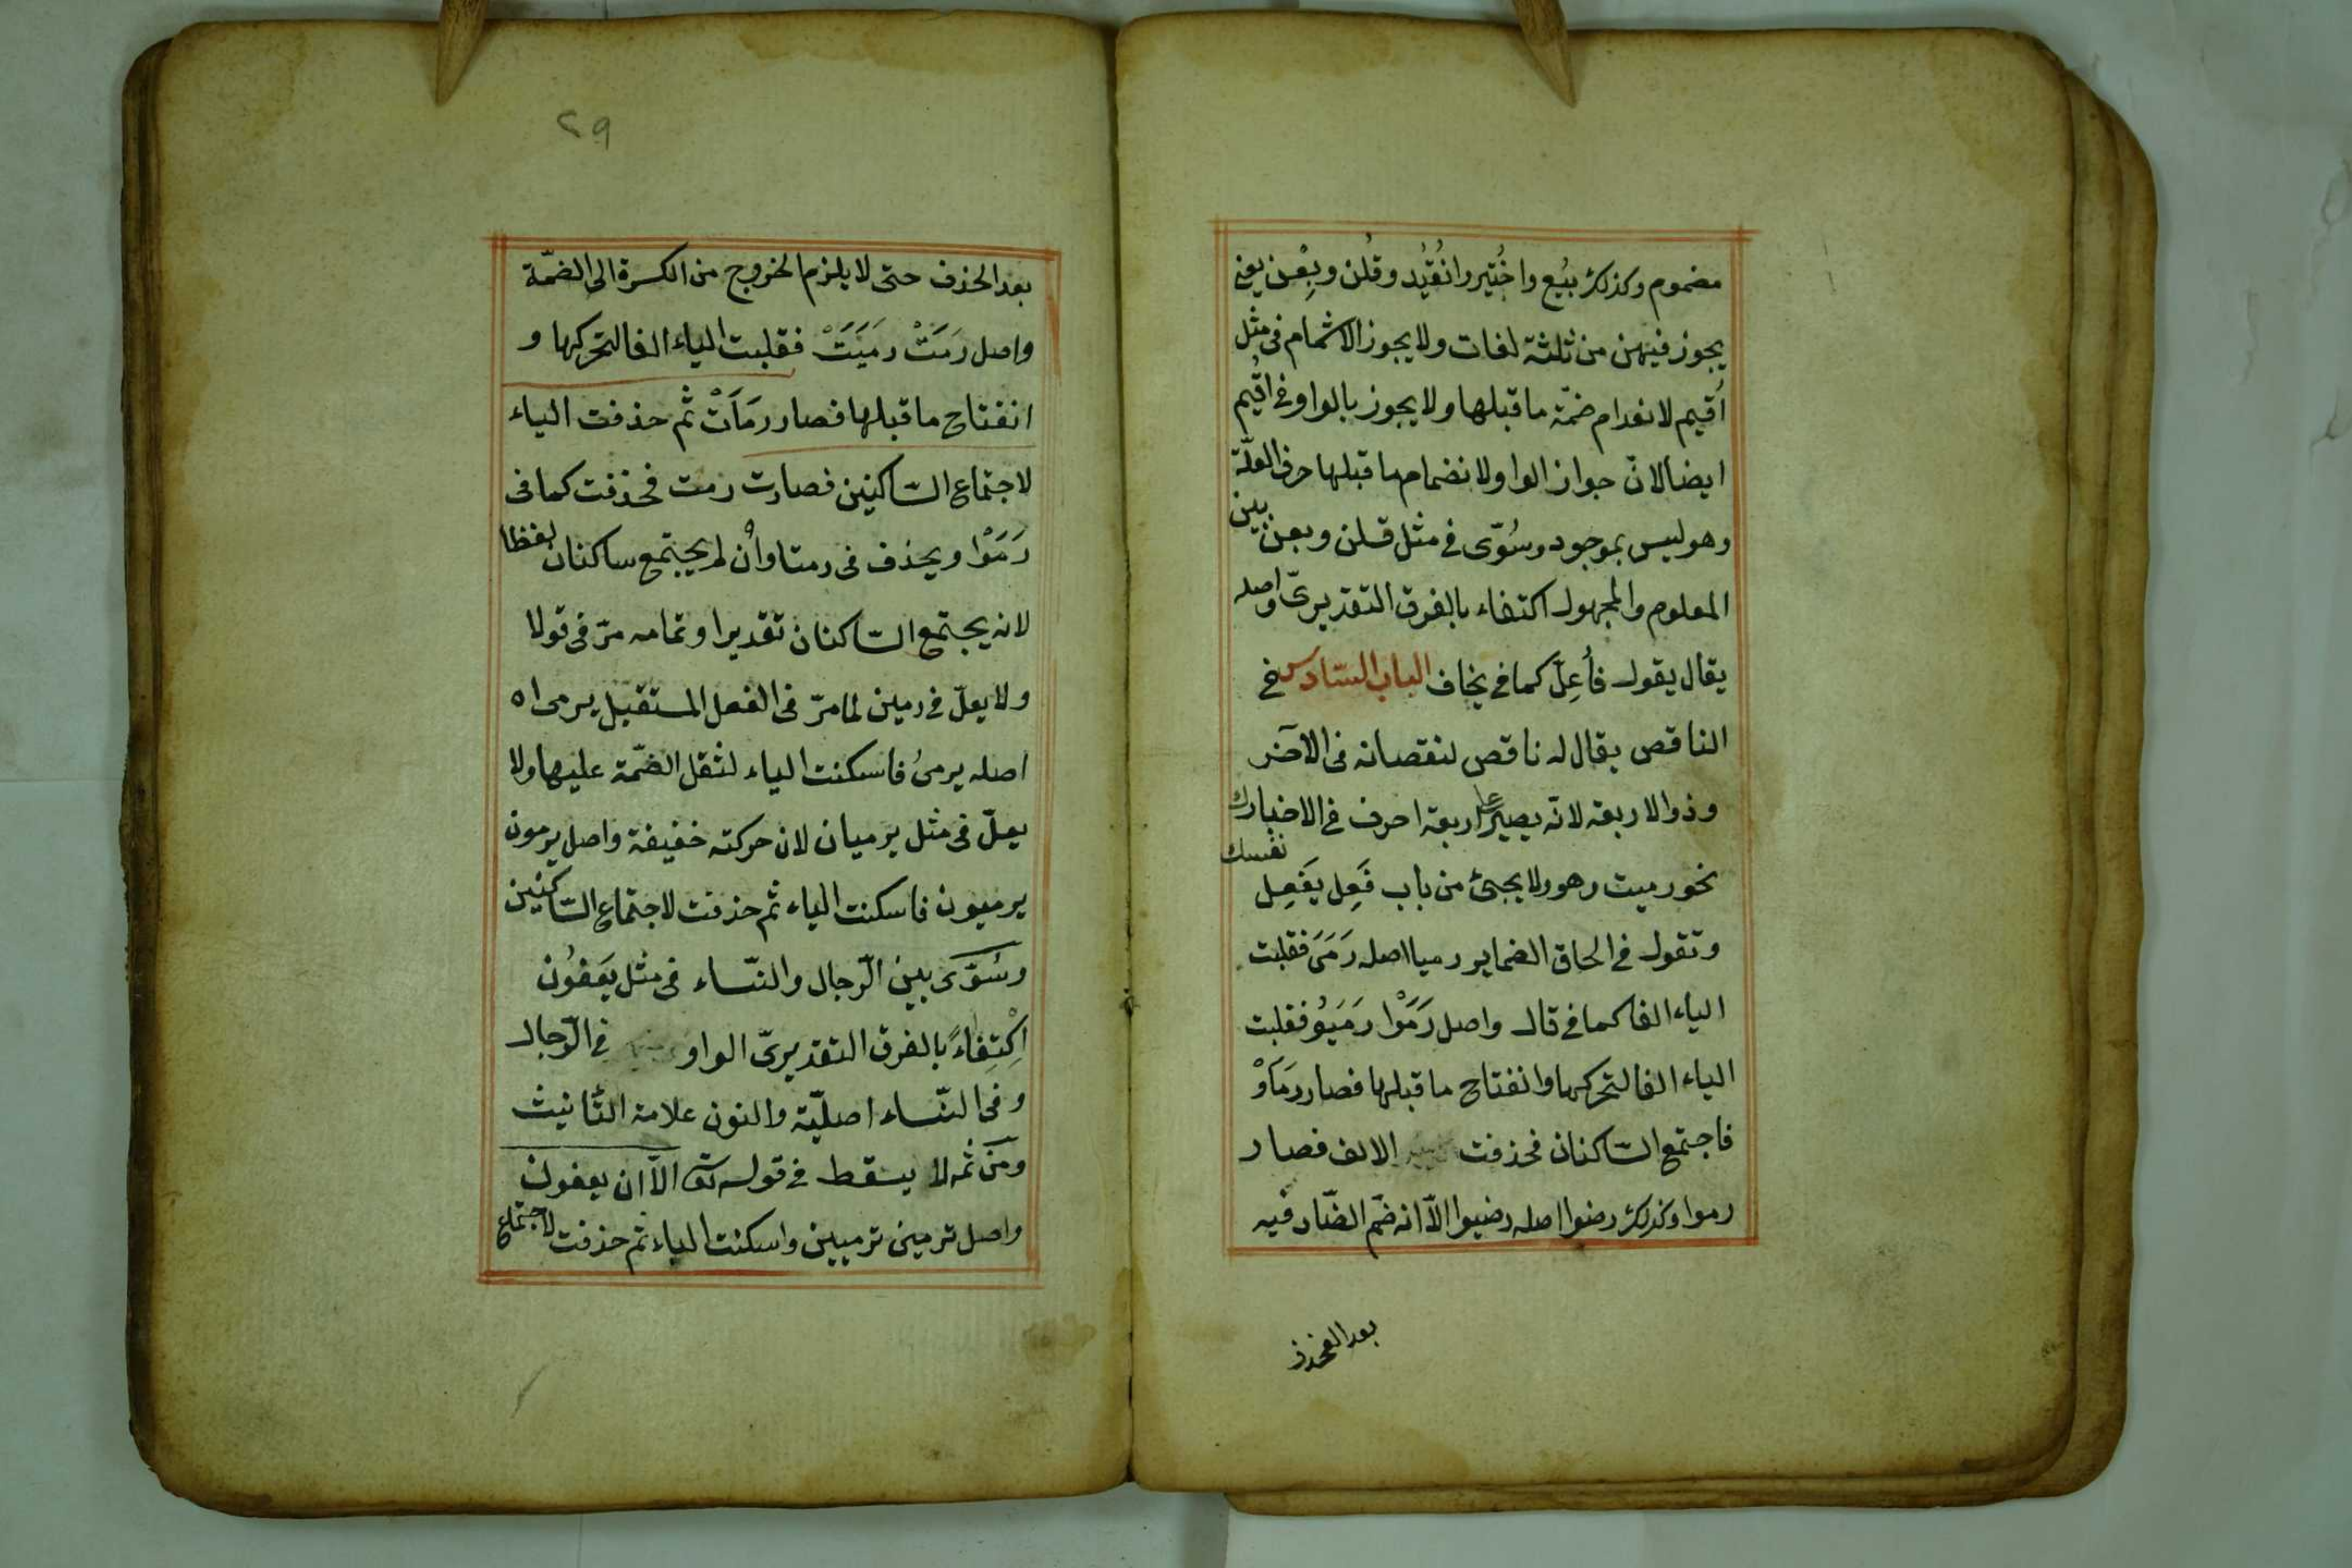 مضموم وكذلك بُيُع واخُتُير وانُقُيُد وقُلن وبِعْن يعني
يجوز فيهن من ثلثة لغات ولا يجوز الاشمام فى مثل
اُقيم لانعدام ضمّة ما قبلها ولا يجوز بالواو فى اُقيم
ايضا لانّ جواز الواو لانضمام ما قبلها حرف العلّة
وهو ليس بموجود وسُوّى فى مثل قلن وبعن بين
المعلوم والمجهول اكتفاء بالفرق التقديرىّ واصل
يقال يقول فأُعِلّ كما فى يخاف الباب السّادس فى
الناقص يقال له ناقص لنقصانه فى الآخر
وذو الاربعة لانّه يصير على اربعة احرف فى الاخبارك
نفسك
نحو رميت وهو ولا يجئ من باب فَعِل يَفعِل
وتقول فى الحاق الضماير رميا اصله رَمَىَ فقلبت
الياء الفا كما فى قال واصل رَمَوْا رَمَيُو فقلبت
الياء الفا لتحركها وانفتاح ما قبلها فصار رمَاَوْ
فاجتمع السّاكنان فحذفت الالف فصار
رموا وكذلك رضوا اصله رضيوا الاّ انه ضَم الضّاد فيه
بعد الفحذف
٢٩
بعد الحذف حتى لا يلزم الخروج من الكسرة الى الضمّة
واصل رَمَتْ رمَيَتْ فقلبت الياء الفا لتحركها و
انفتاح ما قبلها فصار رمَاَتْ ثم حذفت الياء
لاجتماع السّاكنين فصارت رمت فحذفت كما فى
رَمَوْا ويحذف فى رمتا وأن لم يجتمع ساكنان لفظا
لانه يجتمع السّاكنان تقديرا وتمامه مرّ فى قولا
ولا يعلّ فى رمين لما مرّ فى الفعل المستقبل يرمى اه
اصله يرمىُ فاسكنت الياء لثقل الضمّة عليها ولا
يعلّ فى مثل يرميان لان حركته خفيفة واصل يرمون
يرميون فاسكنت الياء ثم حذفت لاجتماع السّاكنين
وسُوّى بين الرّجال والنسّاء فى مثل يَعفُون
اِكْتِفاءً بالفرق التقديرىّ الواو فى الرّجال
وفى النسّاء اصليّة والنون علامة التّأنيث
ومن ثمه لا يسقط فى قوله تعا الاّ ان يعفون
واصل ترمين ترميين واسكنت الياء ثم حذفت لاجتماع